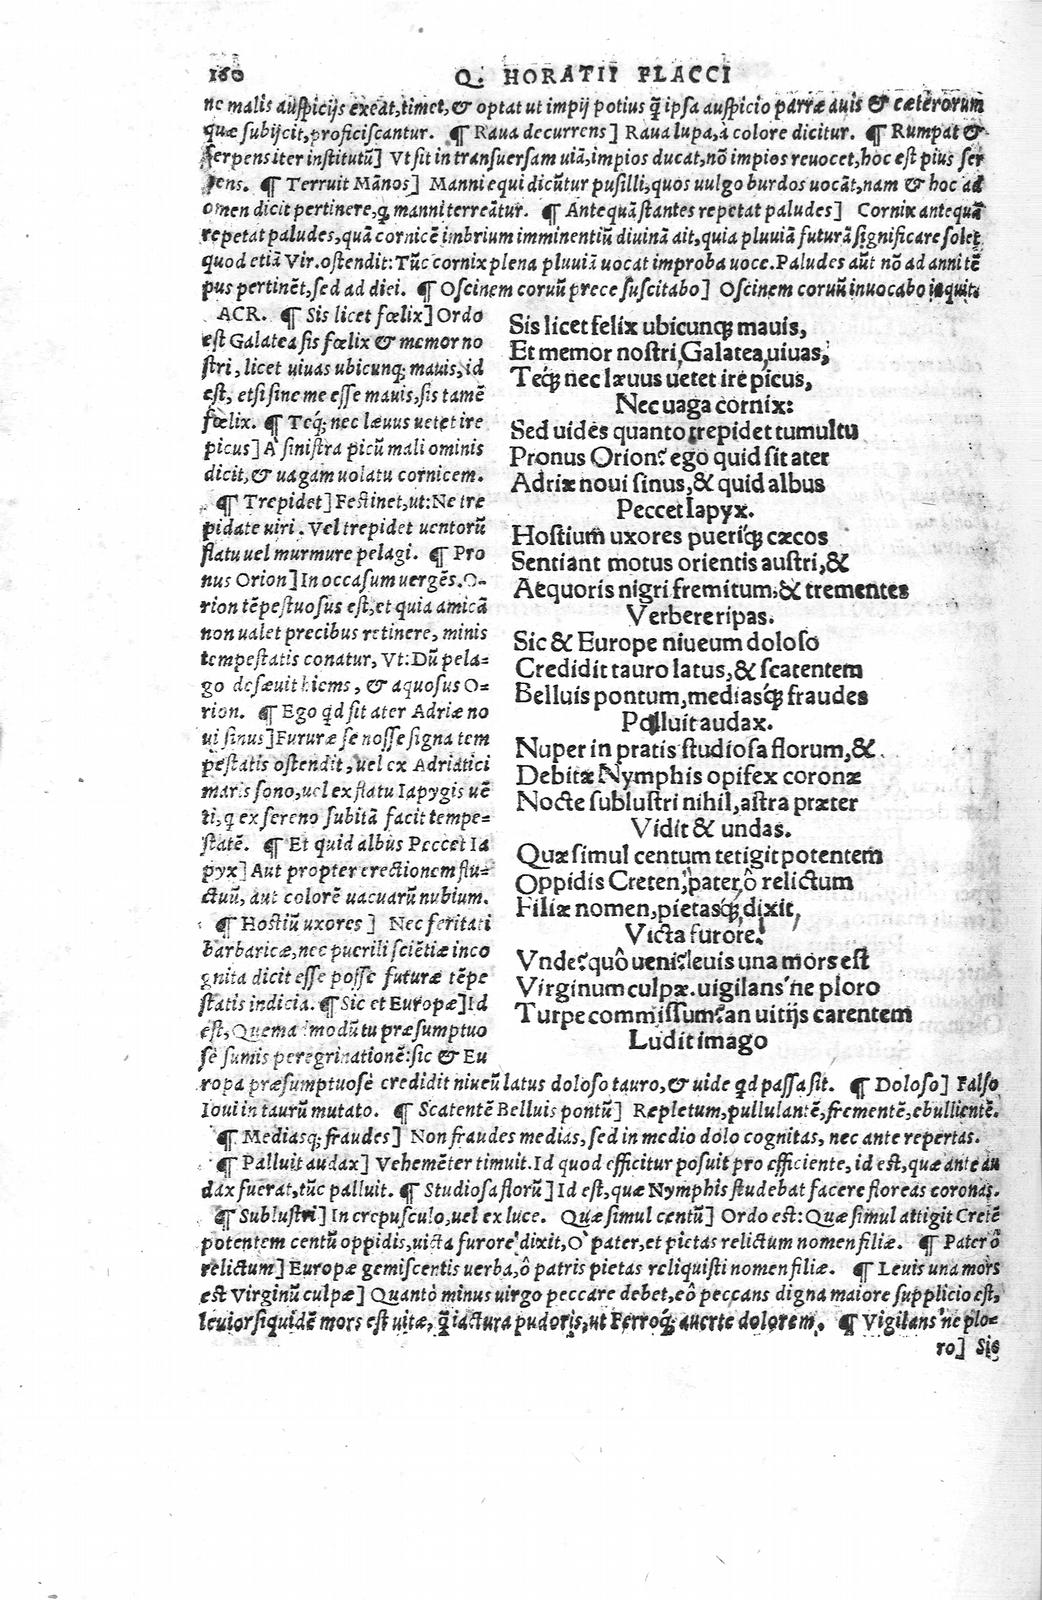 160 Q. HORATII FLACCI
ne malis auſpicijs exeat, timet, & optat ut impij potius q̃ ipſa auſpicio parræ auis & cæterorum
quæ ſubijcit, proficiſcantur. ¶ Raua decurrens] Raua lupa, à colore dicitur. ¶ Rumpat &
ſerpens iter inſtitutũ] Vt ſit in tranſuerſam uiã, impios ducat, nõ impios reuocet, hoc eſt pius ſer
pens. ¶ Terruit Mãnos] Manni equi dicũtur puſilli, quos uulgo burdos uocãt, nam & hoc ad
omen dicit pertinere, q̃ manni terreãtur. ¶ Antequã ſtantes repetat paludes] Cornix antequã
repetat paludes, quã cornicẽ imbrium imminentiũ diuinã ait, quia pluuiã futurã ſignificare ſolet
quod etiã Vir. oſtendit: Tũc cornix plena pluuiã uocat improba uoce. Paludes aũt nõ ad anni tẽ
pus pertinẽt, ſed ad diei. ¶ Oſcinem coruũ prece ſuſcitabo] Oſcinem coruũ inuocabo inquit.
ACR. ¶ Sis licet fœlix] Ordo
eſt Galatea ſis fœlix & memor no
ſtri, licet uiuas ubicunq; mauis, id
eſt, etſi ſine me eſſe mauis, ſis tamẽ
fœlix. ¶ Teq́; nec læuus uetet ire
picus] A ſiniſtra picũ mali ominis
dicit, & uagam uolatu cornicem.
¶ Trepidet] Feſtinet, ut: Ne tre
pidate uiri. Vel trepidet uentorũ
flatu uel murmure pelagi. ¶ Pro
nus Orion] In occaſum uergẽs. O-
rion tẽpeſtuoſus eſt, et quia amicã
non ualet precibus retinere, minis
tempeſtatis conatur, Vt: Dũ pela=
go deſæuit hiems, & aquoſus O=
rion. ¶ Ego qd ſit ater Adriæ no
ui ſinus] Fururæ ſe noſſe ſigna tem
peſtatis oſtendit, uel ex Adriatici
maris ſono, uel ex flatu Iapygis uẽ
ti, q ex ſereno ſubitã facit tempe=
ſtatẽ. ¶ Et quid albus Peccet Ia
pyx] Aut propter erectionem flu=
ctuũ, aut colorẽ uacuarũ nubium.
¶ Hoſtiũ uxores] Nec feritati
barbaricæ, nec puerili ſciẽtiæ inco
gnita dicit eſſe poſſe futuræ tẽpe
ſtatis indicia. ¶ Sic et Europæ] Id
eſt, Quemadmodũ tu præſumptuo
ſè ſumis peregrinationẽ: ſic & Eu
Sis licet felix ubicunq; mauis,
Et memor noſtri, Galatea, uiuas,
Teq́; nec læuus uetet ire picus,
Nec uaga cornix:
Sed uides quanto trepidet tumultu
Pronus Orion? ego quid ſit ater
Adriæ noui ſinus, & quid albus
Peccet Iapyx.
Hoſtium uxores pueriq́; cæcos
Sentiant motus orientis auſtri, &
Aequoris nigri fremitum, & trementes
Verbere ripas.
Sic & Europe niueum doloſo
Credidit tauro latus, & ſcatentem
Belluis pontum, mediasq́; fraudes
Palluit audax.
Nuper in pratis ſtudioſa florum, &
Debitæ Nymphis opifex coronæ
Nocte ſubluſtri nihil, aſtra præter
Vidit & undas.
Quæ ſimul centum tetigit potentem
Oppidis Creten, pater, ô relictum
Filiæ nomen, pietasq́;, dixit,
Victa furore!
Vnde? quô ueni? leuis una mors eſt
Virginum culpæ. uigilans ne ploro
Turpe commiſſum? an uitijs carentem
Ludit imago
ropa præſumptuoſè credidit niueũ latus doloſo tauro, & uide qd paſſa ſit. ¶ Doloſo] Falſo
Ioui in taurũ mutato. ¶ Scatentẽ Belluis pontũ] Repletum, pullulantẽ, frementẽ, ebullientẽ.
¶ Mediasq; fraudes] Non fraudes medias, ſed in medio dolo cognitas, nec ante repertas.
¶ Palluit audax] Vehemẽter timuit. Id quod efficitur poſuit pro efficiente, id eſt, quæ ante au
dax fuerat, tũc palluit. ¶ Studioſa florũ] Id eſt, quæ Nymphis ſtudebat facere floreas coronas.
¶ Subluſtri] In crepuſculo, uel ex luce. Quæ ſimul centũ] Ordo eſt: Quæ ſimul attigit Cretẽ
potentem centũ oppidis, uicta furore dixit, O pater, et pietas relictum nomen filiæ. ¶ Pater ô
relictum] Europæ gemiſcentis uerba, ô patris pietas reliquiſti nomen filiæ. ¶ Leuis una mors
eſt Virginũ culpæ] Quantò minus uirgo peccare debet, eô peccans digna maiore ſupplicio eſt,
leuior ſiquidẽ mors eſt uitæ, q̃ iactura pudoris, ut Ferroq́; auerte dolorem. ¶ Vigilans ne plo=
ro] Sic